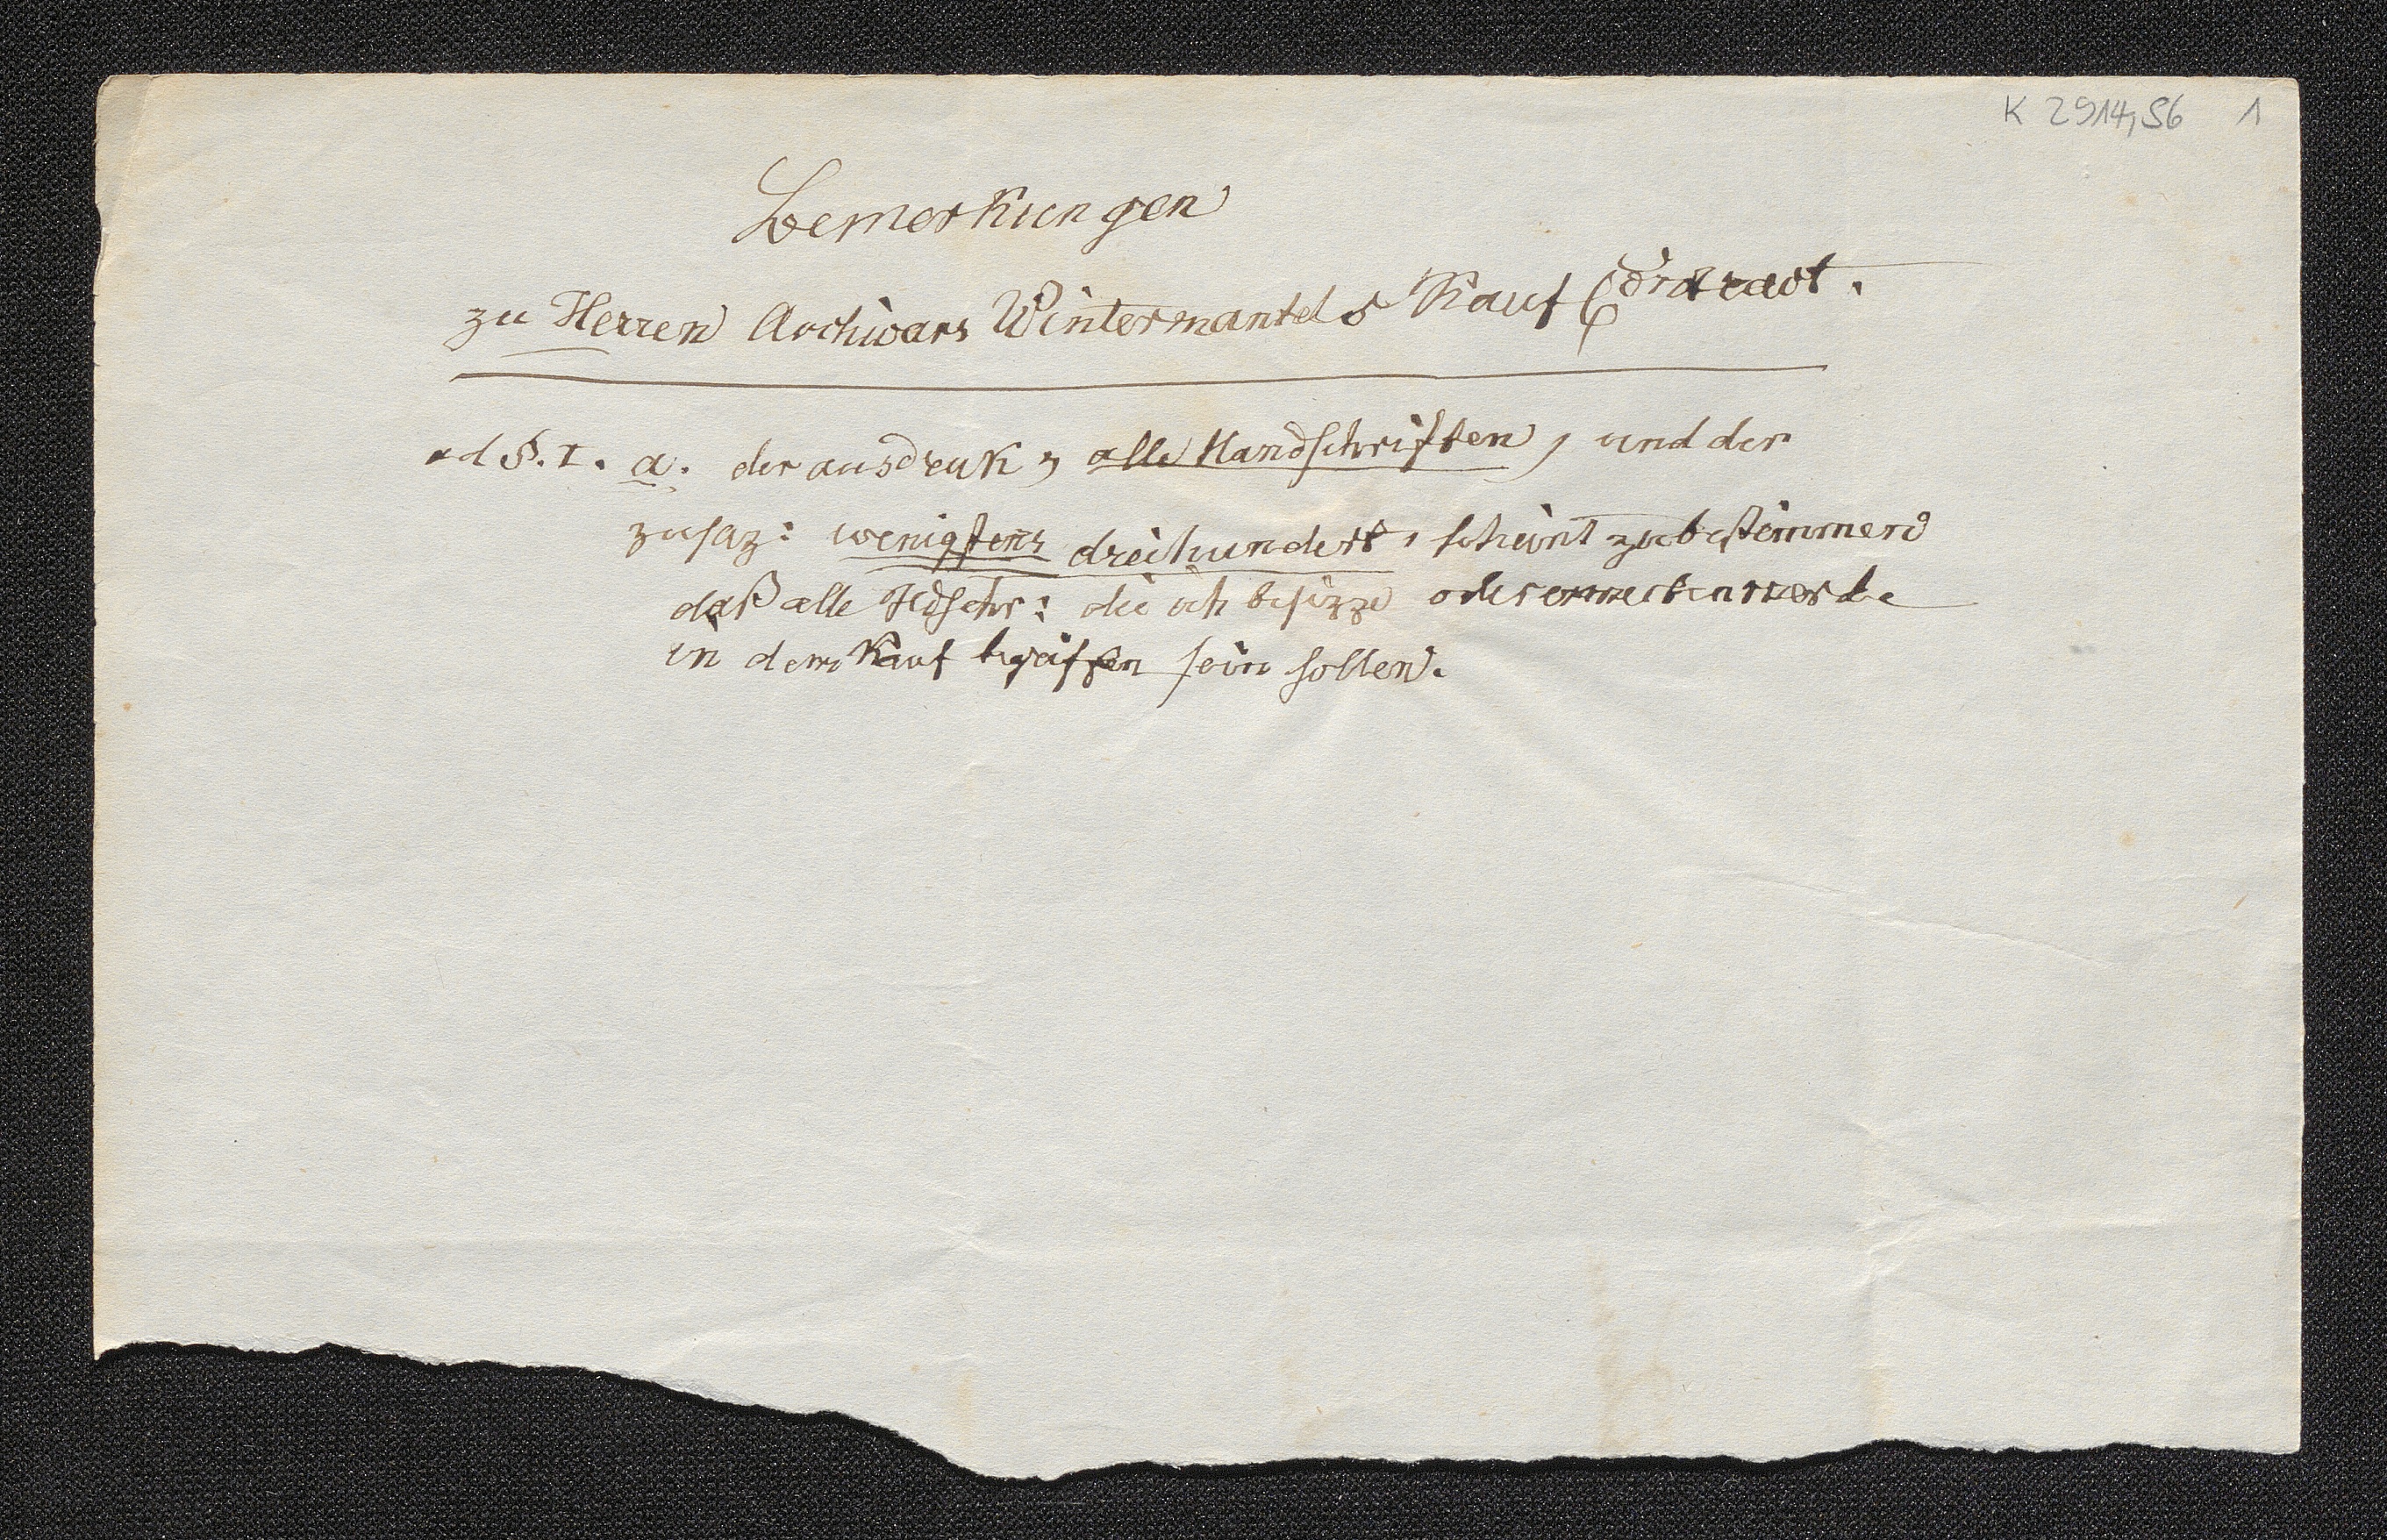 K 2914,56 1
Bemerkungen
zu Herren Archivars Wintermantels Kauf Contract.
ad §. I. a. der ausdruk, alle Handschriften, und der
zusaz: wenigstens dreihundert, scheint zu bestimmen
daß alle Hdschr: die ich besizze oder
in dem Kauf begriffen sein sollen.